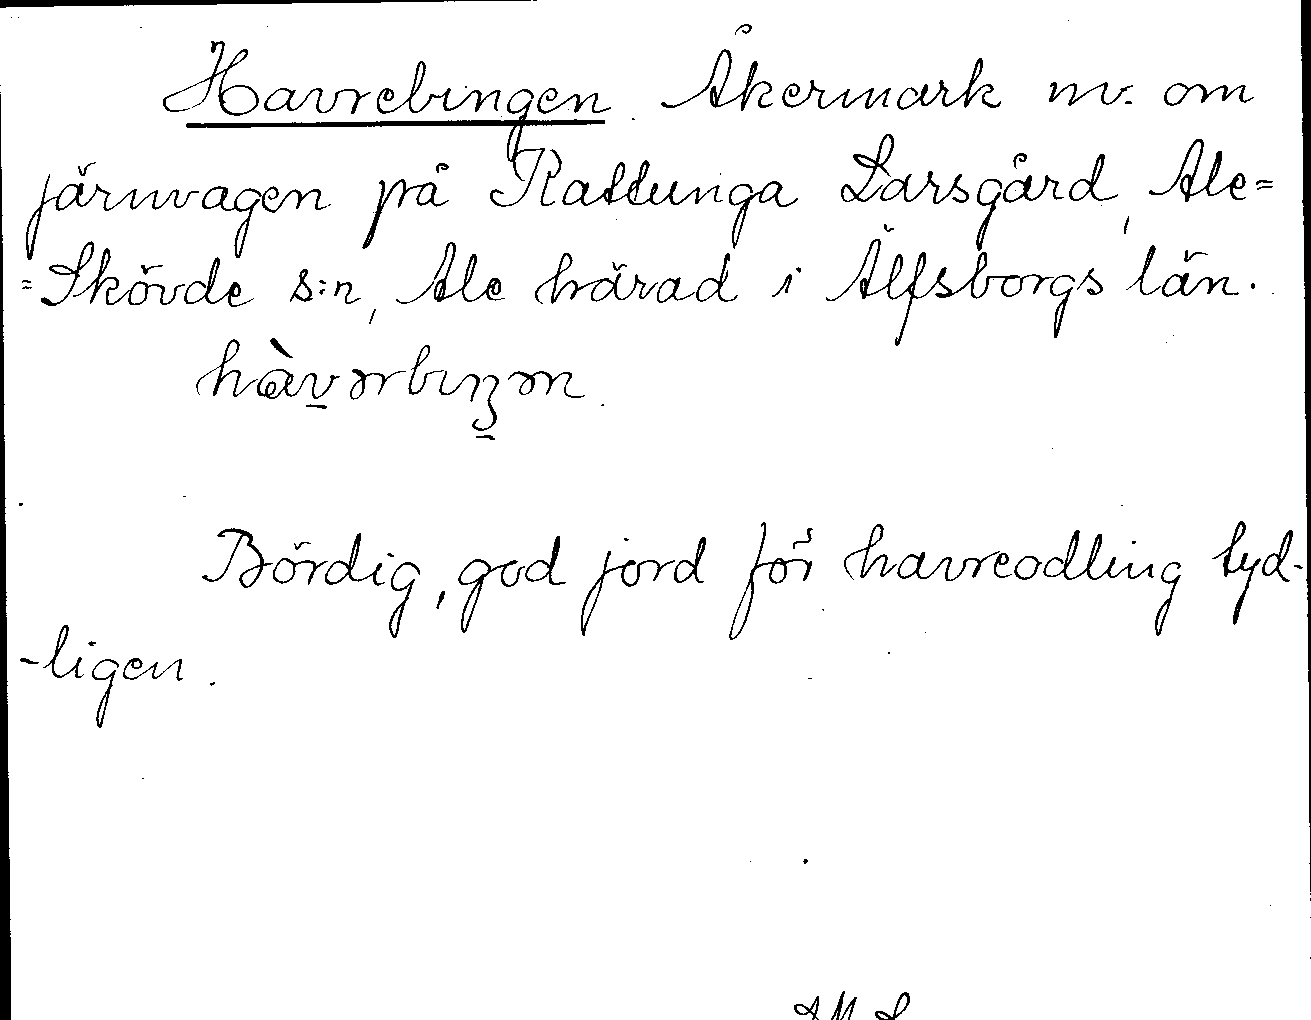 Havrebingen Åkermark nv. om
järnvagen på Rattunga Larsgård, Ale=
=Skövde s:n, Ale härad i Älfsborgs län.
Bördig, god jord för havreodling tyd-
-ligen.